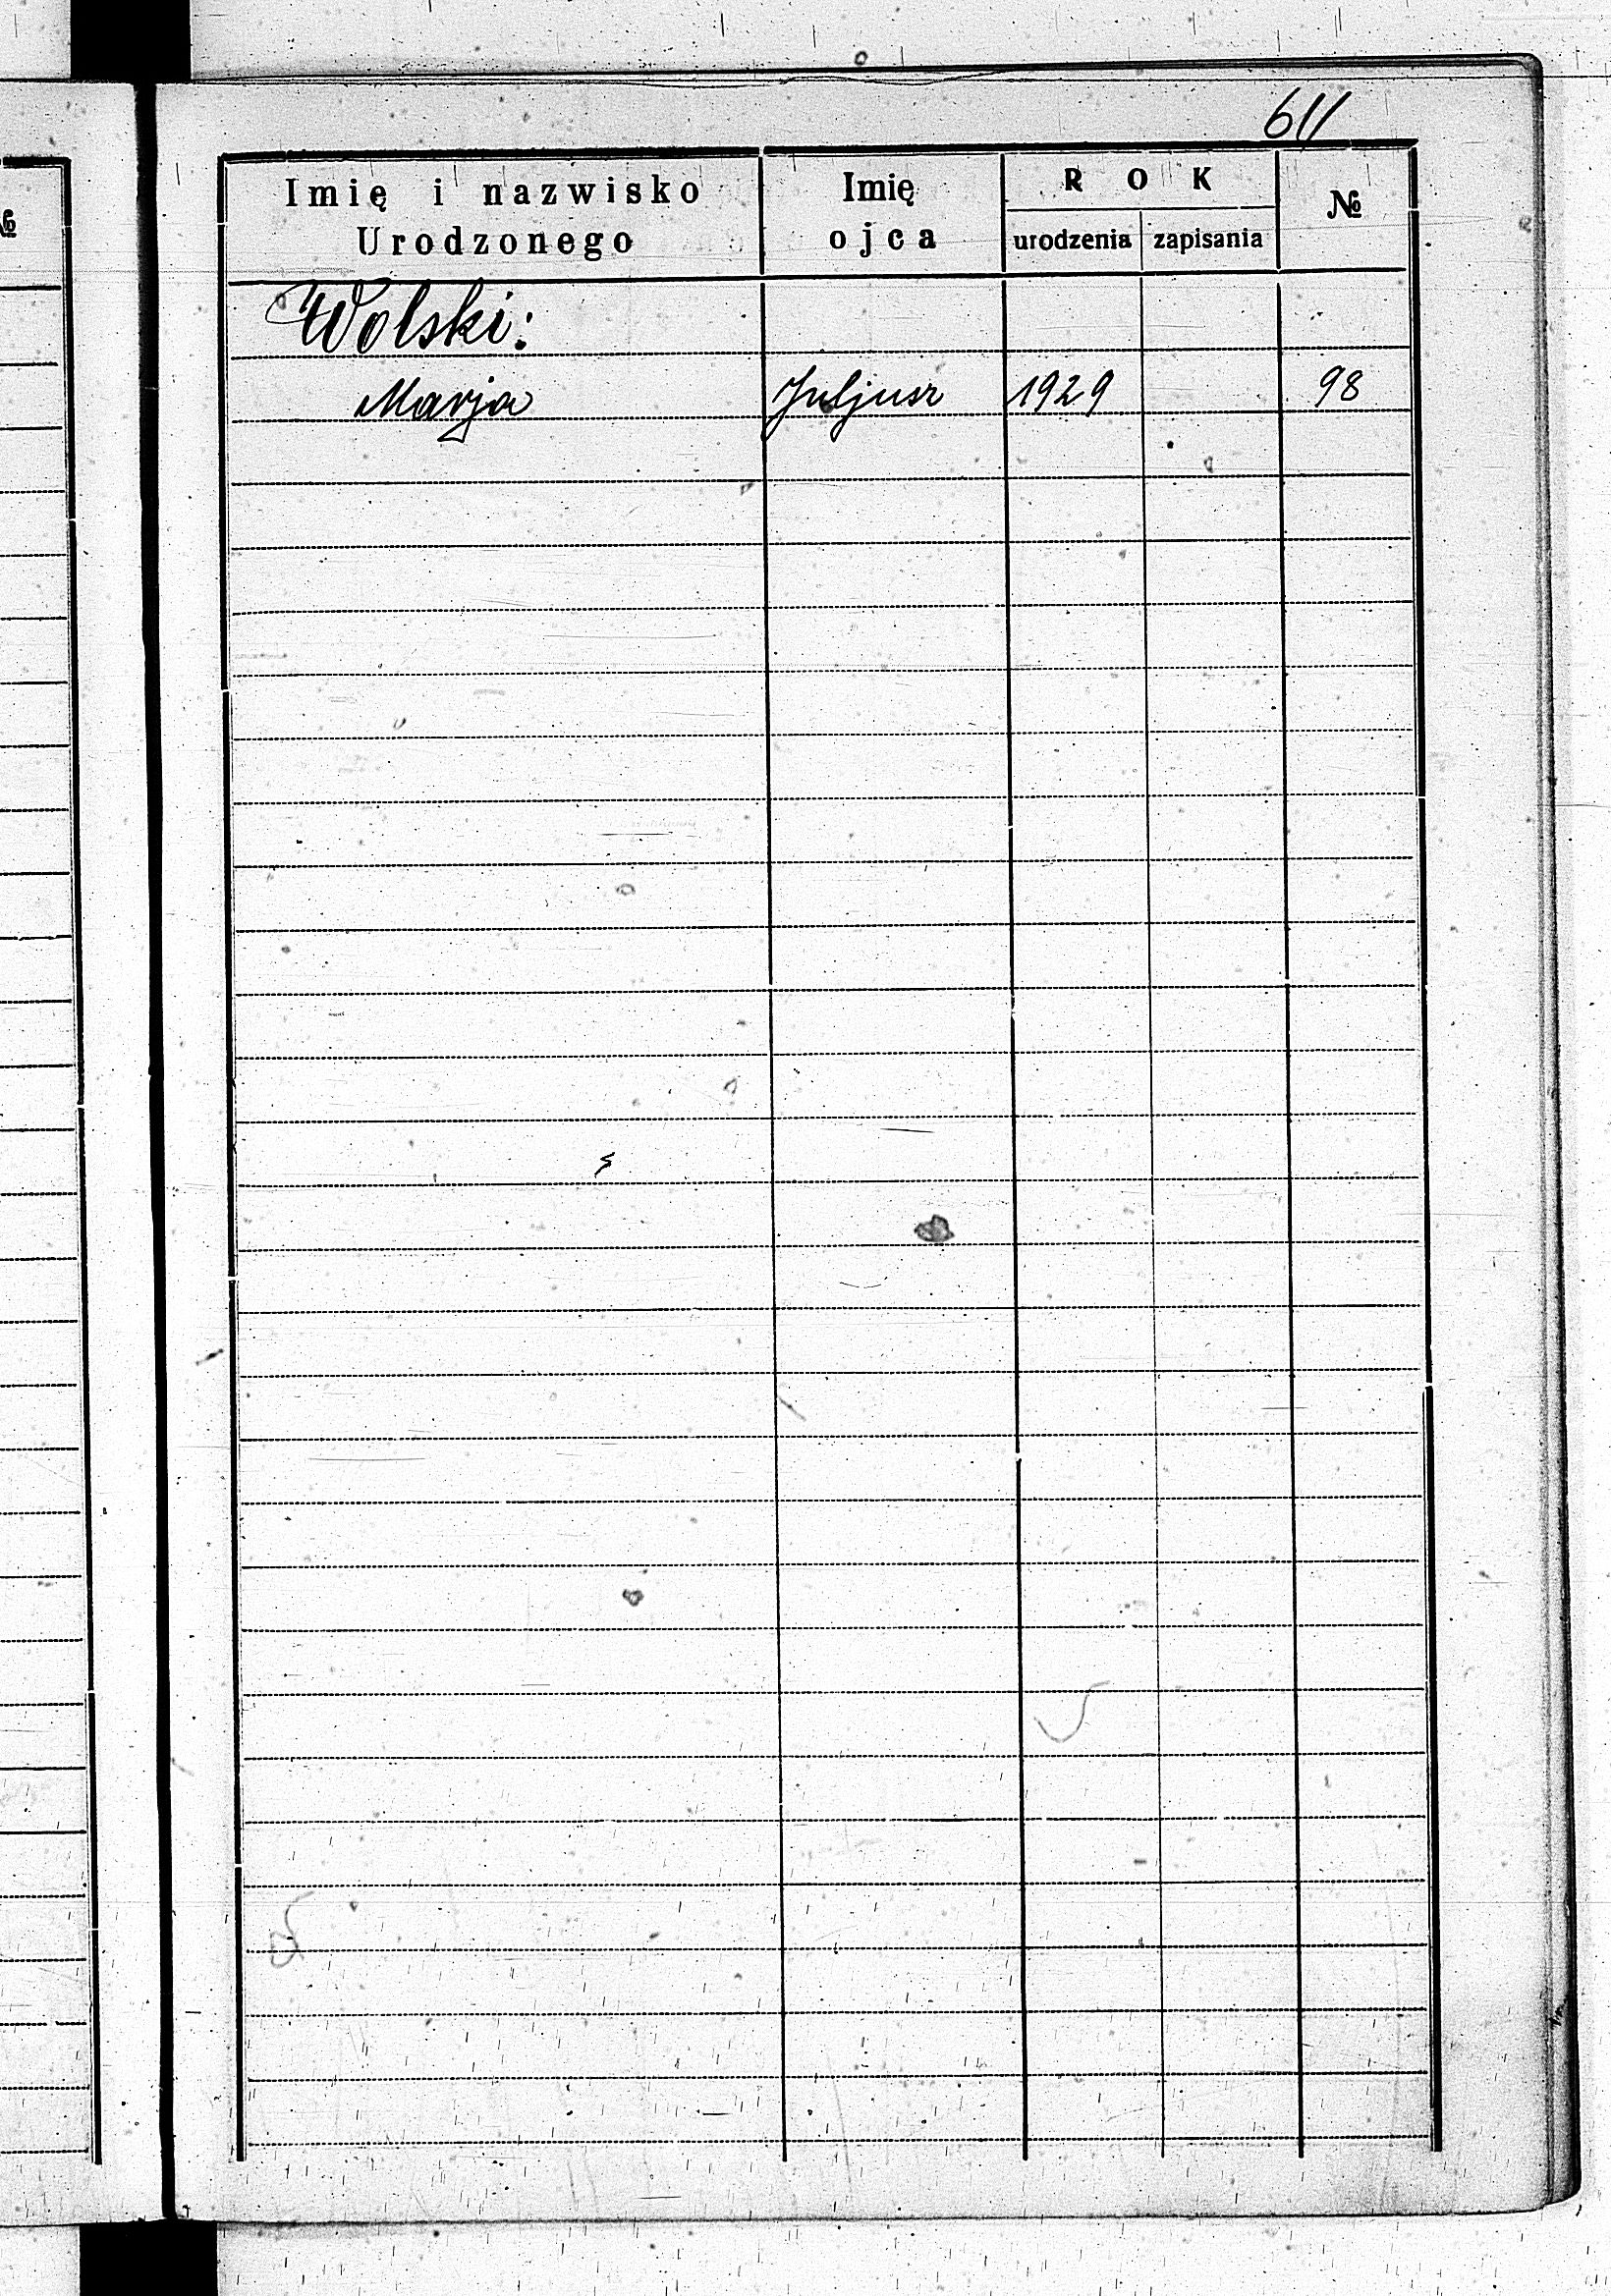 611
Imię i nazwisko Urodzonego Imię ojca ROK urodzenia zapisania №
№
Wolski:
Marja Juljusz 1929 98